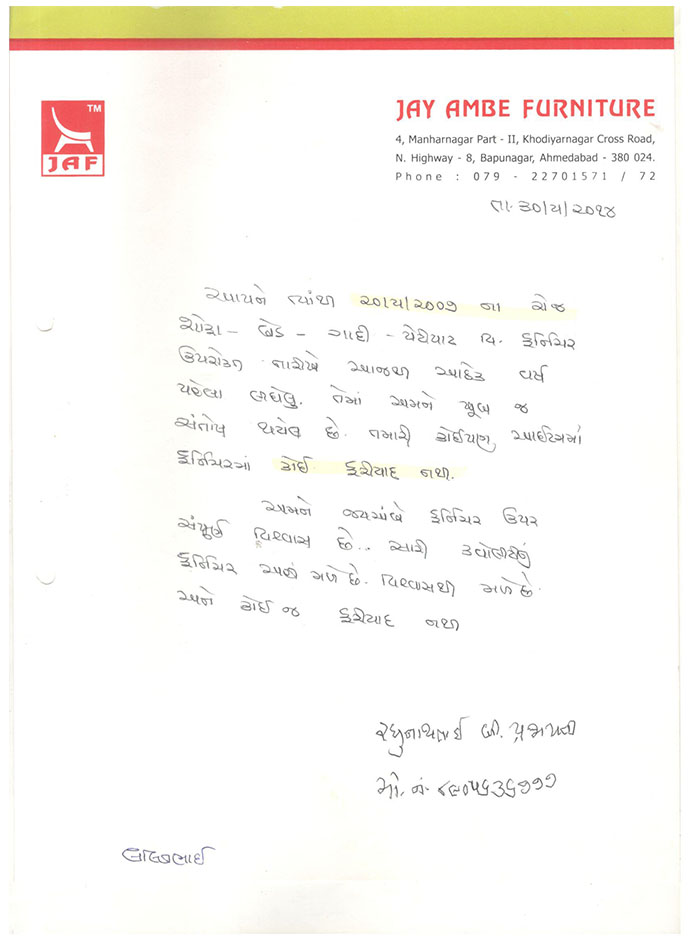 TM
JAF
JAY AMBE FURNITURE
4, Manharnagar Part - II, Khodiyarnagar Cross Road,
N. Highway - 8, Bapunagar, Ahmedabad - 380 024.
Phone : 079 - 22701571 / 72
તા. ૩૦/૫/૨૦૧૪
આપને ત્યાંથી ૨૦/૫/૨૦૦૭ ના રોજ
શોફા - બેડ - ગાદી - પેટીપાટ વિ. ફર્નિચર
ઉપરોક્ત તારીખે આજથી આઠેક વર્ષ
પહેલા લીધેલુ. તેમાં અમને ખૂબ જ
સંતોષ થયેલ છે. તમારી કોઈપણ આઈટમમાં
ફર્નિચરમાં કોઈ ફરીયાદ નથી.
અમને જયઅંબે ફર્નિચર ઉપર
સંપૂર્ણ વિશ્વાસ છે.. સારી ક્વોલીટીનું
ફર્નિચર અહીં મળે છે. વિશ્વાસથી મળે છે.
અને કોઈ જ ફરીયાદ નથી
રઘુનાથભાઈ બી. પ્રજાપતી
મો. નં.